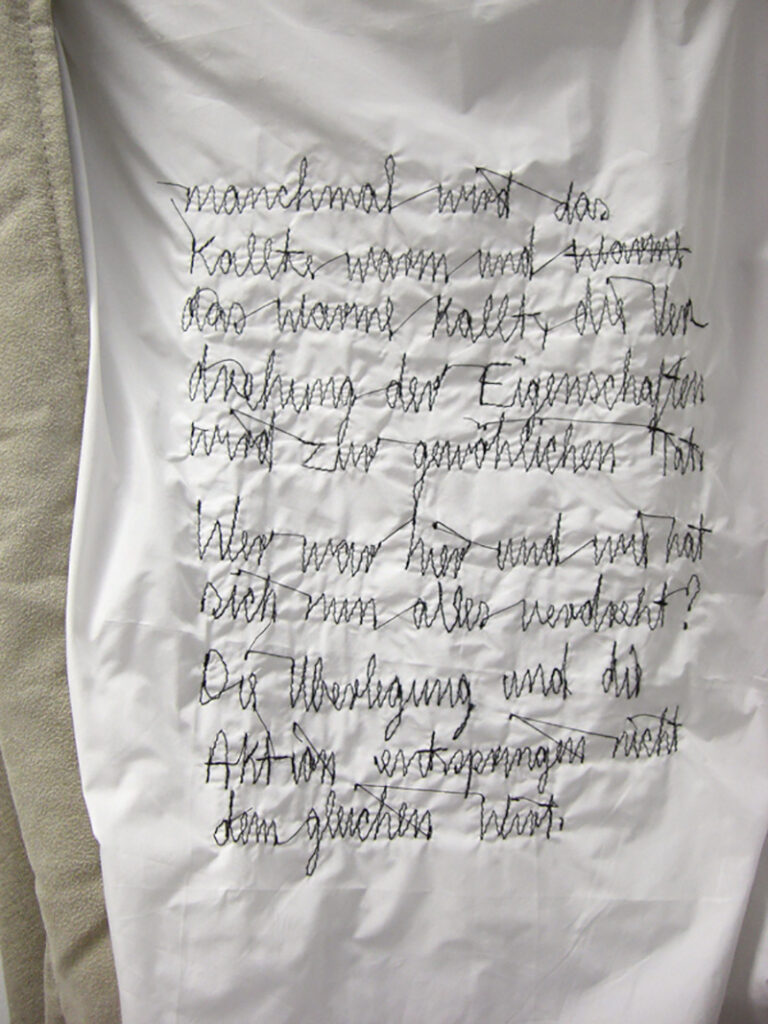 manchmal wird das
Kallte warm und warme
das warme kallt, die Ver
drehung der Eigenschaften
wird zur gewöhlichen Tat.
Wer war hier und und hat
sich nun alles verdreht?
Die Überlegung und die
Aktion entspringen nicht
dem gleichen Wirt.